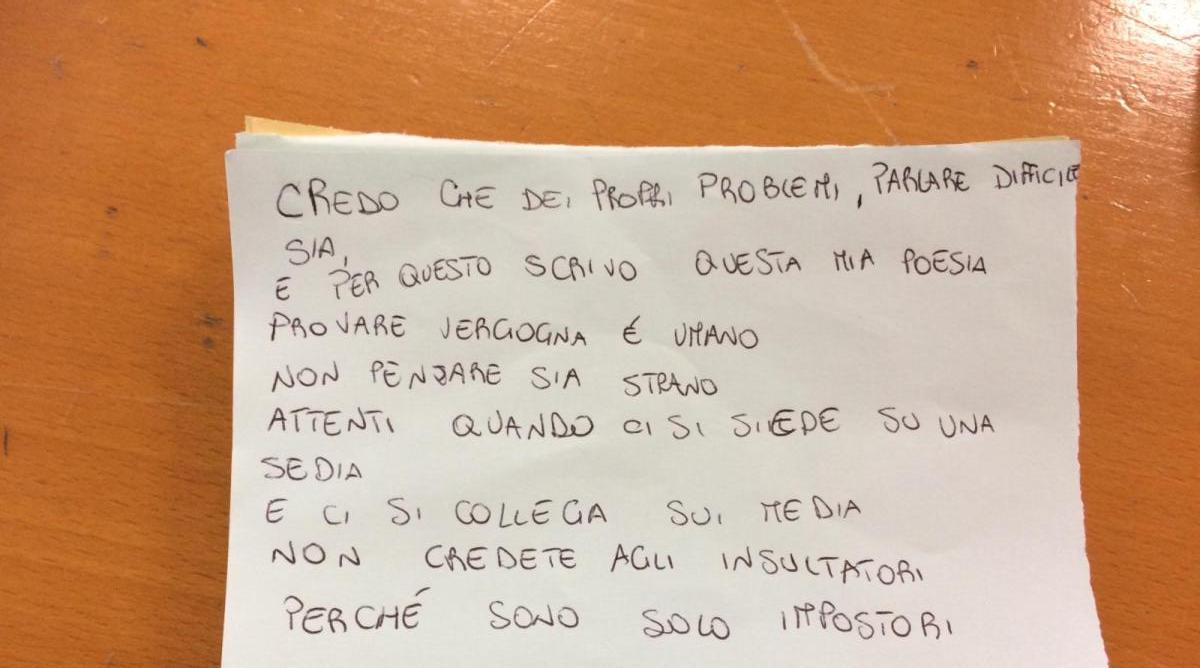 CREDO CHE DEI PROPRI PROBLEMI, PARLARE DIFFICILE
SIA,
E PER QUESTO SCRIVO QUESTA MIA POESIA
PROVARE VERGOGNA É UMANO
NON PENSARE SIA STRANO
ATTENTI QUANDO CI SI SIEDE SU UNA
SEDIA
E CI SI COLLEGA SUI MEDIA
NON CREDETE AGLI INSULTATORI
PERCHÉ SONO SOLO IMPOSTORI